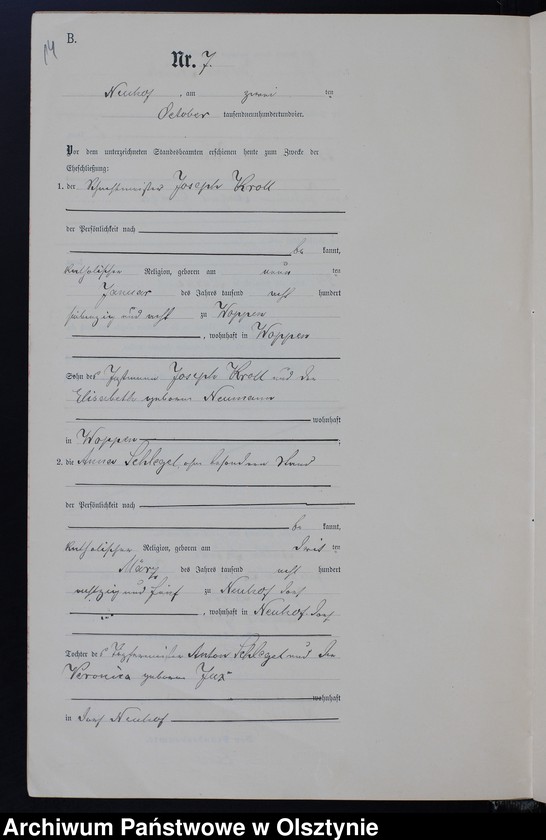 B.
14
Nr. 7.
Neuhof, am zwei ten
October tausendneunhundertundvier.
Vor dem unterzeichneten Standesbeamten erschienen heute zum Zwecke der
Eheschließung:
1. der Joseph Kroll
der Persönlichkeit nach
be kannt,
katholischer Religion, geboren am neun ten
Januar des Jahres tausend acht hundert
siebenzig und acht zu Woppen
, wohnhaft in Woppen
Sohn des Instmann Joseph Kroll und der
Elisabeth geborene Neumann
wohnhaft
in Woppen ;
2. die Anna Schlegel, ohne besonderen Stand
der Persönlichkeit nach
be kannt,
katholischer Religion, geboren am drei ten
März des Jahres tausend acht hundert
achtzig und fünf zu Neuhof Dorf
, wohnhaft in Neuhof Dorf
Tochter des Töpfermeister Anton Schlegel und der
Veronica geborene Jux
wohnhaft
in Dorf Neuhof
Archiwum Państwowe w Olsztynie